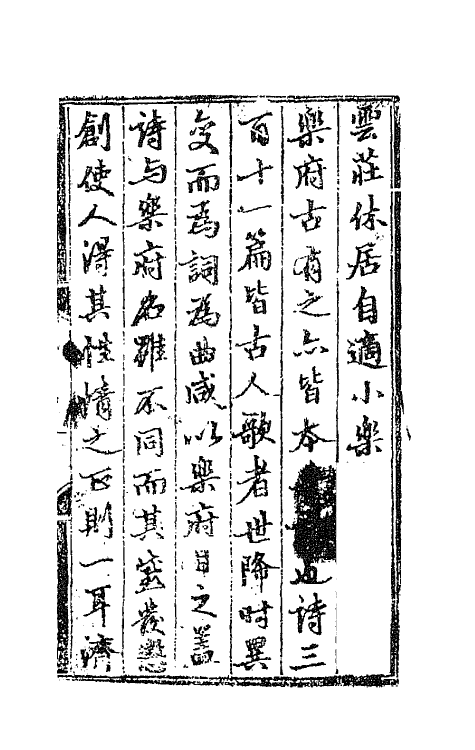 雲莊休居自適小樂
樂府古有之亦皆本也詩三
百十一篇皆古人歌者世降時異
變而爲詞爲曲咸以樂府目之蓋
詩与樂府名雖不同而其感發懲
創使人得其性情之正則一耳濟